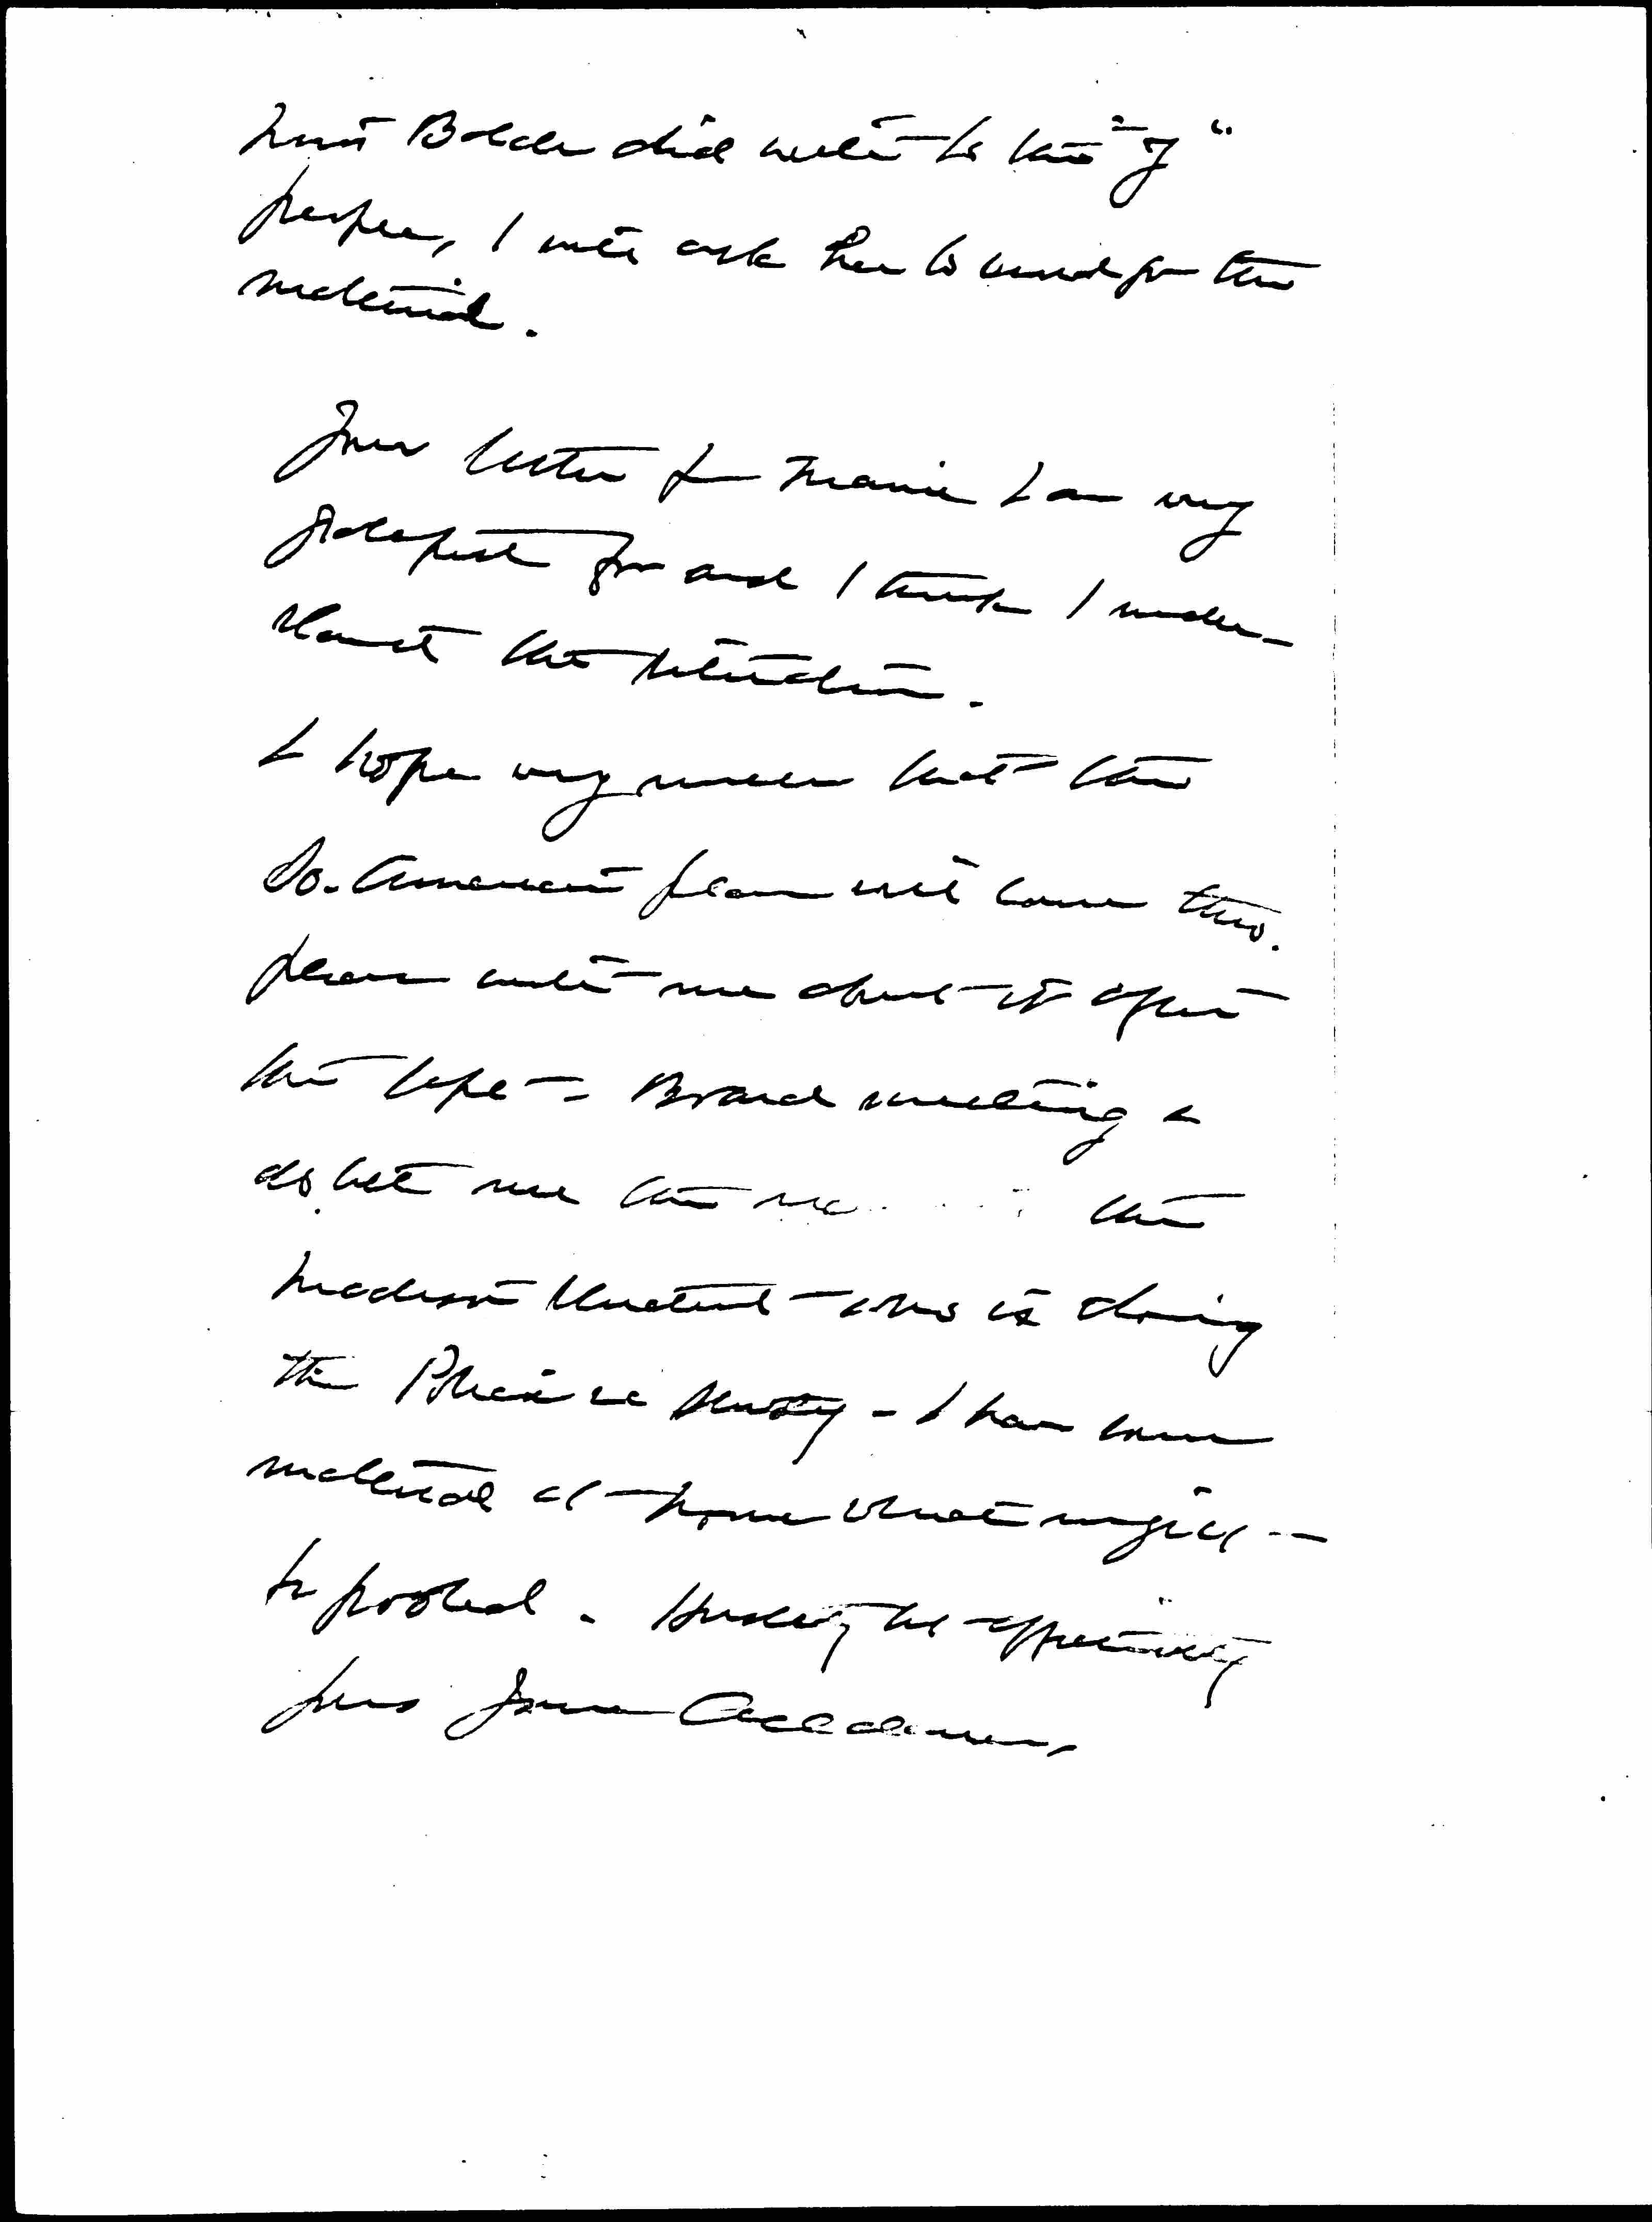 Miss Balch did write to the "Y"
people, I will ask her to send for the
material.
Your letter from Marie I am very
grateful for and I think I under-
stand the situation.
I hope very much that the
So. American plan will come thro.
Please write me about it after
the Sept - Board meeting &
do let me the the
Madison student - who is doing
the Police study - I have some
material at home that might
be pooled. Hastily but affectionately
yrs Jane Addams.